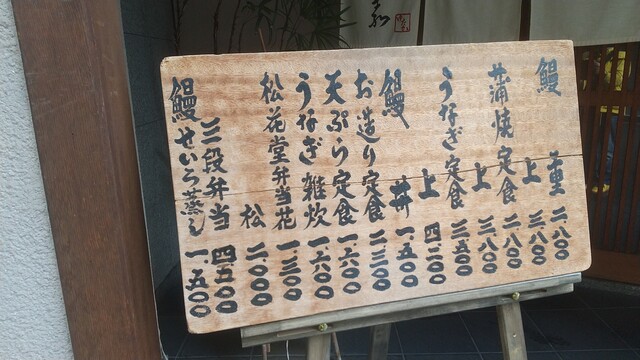 鰻重 二八〇〇
上 三八〇〇
蒲焼定食 二八〇〇
上 三八〇〇
うなぎ定食 三五〇〇
上 四二〇〇
鰻丼 一五〇〇
お造り定食 二三〇〇
天ぷら定食 一六〇〇
うなぎ雑炊 一六〇〇
松花堂弁当花 一三〇〇
松 二〇〇〇
三段弁当 四五〇〇
鰻せいろ蒸し 一五〇〇